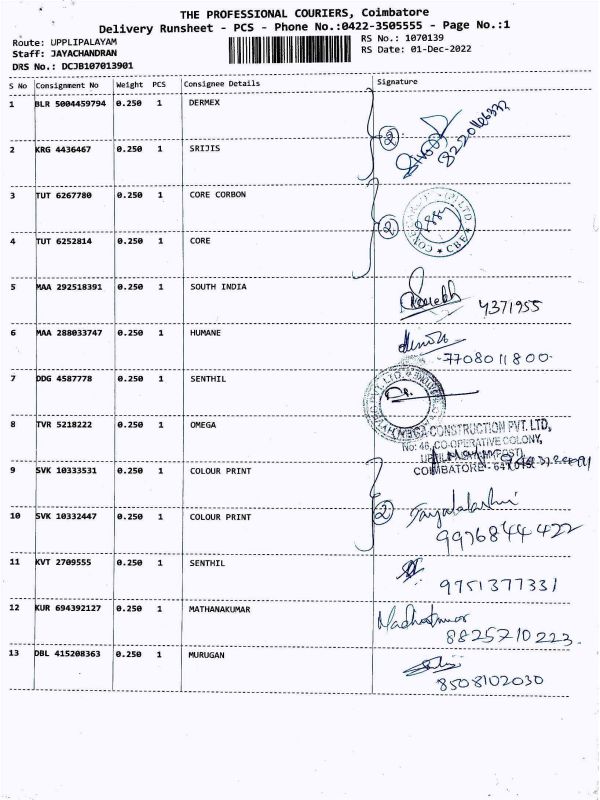 THE PROFESSIONAL COURIERS, Coimbatore
Delivery Runsheet - PCS - Phone No.:0422-3505555 - Page No.:1
Route: UPPLIPALAYAM
RS No.: 1070139
Staff: JAYACHANDRAN
RS Date: 01-Dec-2022
DRS No.: DCJB107013901
S No Consignment No Weight PCS Consignee Details Signature
1 BLR 5004459794 0.250 1 DERMEX
2 KRG 4436467 0.250 1 SRIJIS
2
3 TUT 6267780 0.250 1 CORE CORBON
4 TUT 6252814 0.250 1 CORE
2
CBE
5 MAA 292518391 0.250 1 SOUTH INDIA
4371955
6 MAA 288033747 0.250 1 HUMANE
7708011800
7 DDG 4587778 0.250 1 SENTHIL
8 TVR 5218222 0.250 1 OMEGA
MEGA CONSTRUCTION PVT. LTD,
No: 46, CO-OPERATIVE COLONY,
COIMBATORE - 641 015.
9 SVK 10333531 0.250 1 COLOUR PRINT
10 SVK 10332447 0.250 1 COLOUR PRINT
2
Jayalakshmi
9976844422
11 KVT 2709555 0.250 1 SENTHIL
9751377331
12 KUR 694392127 0.250 1 MATHANAKUMAR
8825710223
13 DBL 415208363 0.250 1 MURUGAN
8508102030